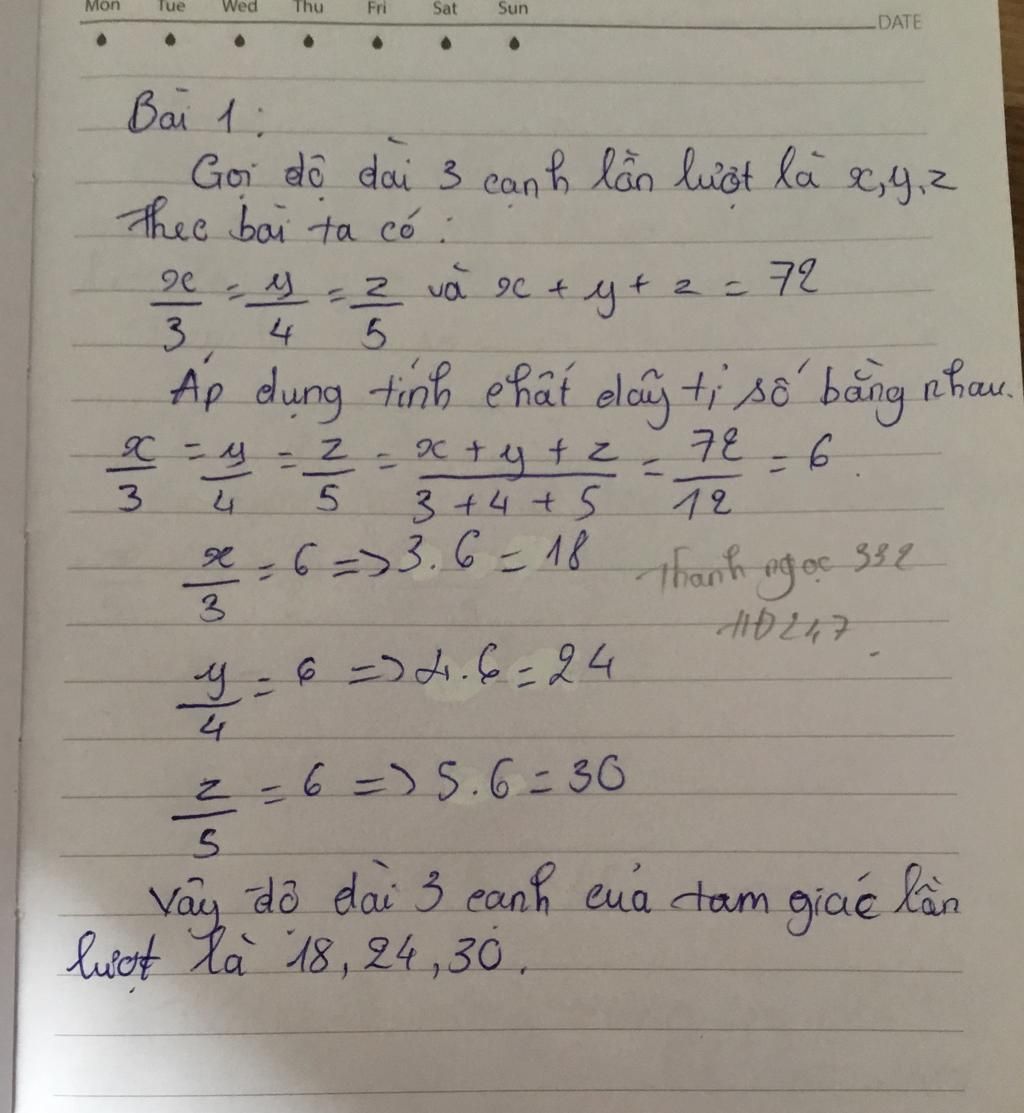 Mon Tue Wed Thu Fri Sat Sun
DATE
Bài 1:
Gọi độ dài 3 cạnh lần lượt là x, y, z
Theo bài ta có:
x/3 = y/4 = z/5 và x + y + z = 72
Áp dụng tính chất dãy tỉ số bằng nhau.
x/3 = y/4 = z/5 = (x + y + z)/(3 + 4 + 5) = 72/12 = 6.
x/3 = 6 => 3.6 = 18
Thanh ngọc 332
HĐ247
y/4 = 6 => 4.6 = 24
z/5 = 6 => 5.6 = 30
Vậy độ dài 3 cạnh của tam giác lần
lượt là 18, 24, 30.